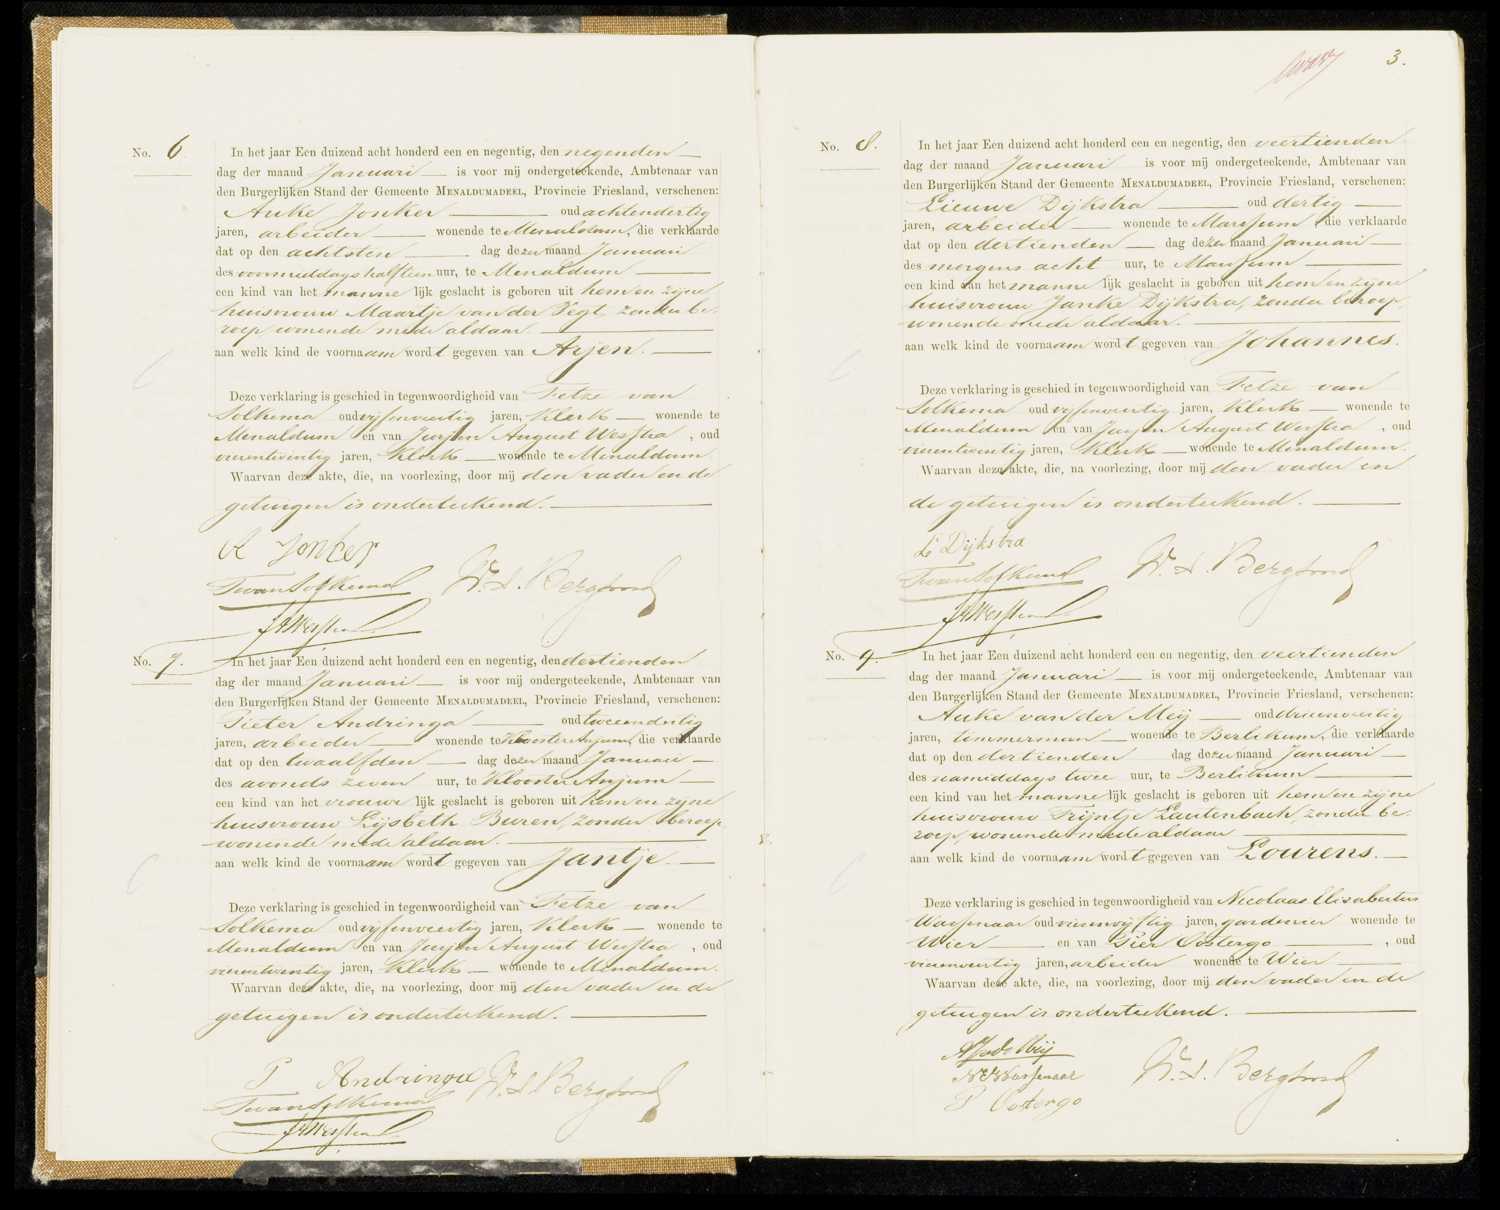 No. 6.
In het jaar Een duizend acht honderd een en negentig, den negenden
dag der maand Januari is voor mij ondergeteekende, Ambtenaar van
den Burgerlijken Stand der Gemeente MENALDUMADEEL, Provincie Friesland, verschenen:
Auke Jonker oud achtendertig
jaren, arbeider wonende te Menaldum, die verklaarde
dat op den achtsten dag dezer maand Januari
des voormiddags halfteen uur, te Menaldum
een kind van het mannelijk geslacht is geboren uit hem en zijne
huisvrouw Maartje van der Vegt, zonder be-
roep, wonende mede aldaar.
aan welk kind de voornaam wordt gegeven van Arjen.
Deze verklaring is geschied in tegenwoordigheid van Fetze van
Solkema oud vijfenveertig jaren, Klerk wonende te
Menaldum en van Jurjen August Westra, oud
vierentwintig jaren, Klerk wonende te Menaldum.
Waarvan deze akte, die, na voorlezing, door mij den vader en de
getuigen is onderteekend.
A Jonker
F van Solkema
W. S. Bergsma
JAWestra
No. 7.
In het jaar Een duizend acht honderd een en negentig, den dertienden
dag der maand Januari is voor mij ondergeteekende, Ambtenaar van
den Burgerlijken Stand der Gemeente MENALDUMADEEL, Provincie Friesland, verschenen:
Pieter Andringa oud tweeendertig
jaren, arbeider wonende te Klooster Anjum, die verklaarde
dat op den twaalfden dag dezer maand Januari
des avonds zeven uur, te Klooster Anjum
een kind van het vrouwelijk geslacht is geboren uit hem en zijne
huisvrouw Lijsbeth Buren, zonder beroep,
wonende mede aldaar.
aan welk kind de voornaam wordt gegeven van Jantje.
Deze verklaring is geschied in tegenwoordigheid van Fetze van
Solkema oud vijfenveertig jaren, Klerk wonende te
Menaldum en van Jurjen August Westra, oud
vierentwintig jaren, Klerk wonende te Menaldum.
Waarvan deze akte, die, na voorlezing, door mij den vader en de
getuigen is onderteekend.
P Andringa
W. S. Bergsma
F van Solkema
JAWestra
3.
No. 8.
In het jaar Een duizend acht honderd een en negentig, den veertienden
dag der maand Januari is voor mij ondergeteekende, Ambtenaar van
den Burgerlijken Stand der Gemeente MENALDUMADEEL, Provincie Friesland, verschenen:
Lieuwe Dijkstra oud dertig
jaren, arbeider wonende te Marssum, die verklaarde
dat op den dertienden dag dezer maand Januari
des morgens acht uur, te Marssum
een kind van het mannelijk geslacht is geboren uit hem en zijne
huisvrouw Janke Dijkstra, zonder beroep,
wonende mede aldaar.
aan welk kind de voornaam wordt gegeven van Johannes.
Deze verklaring is geschied in tegenwoordigheid van Fetze van
Solkema oud vijfenveertig jaren, Klerk wonende te
Menaldum en van Jurjen August Westra, oud
vierentwintig jaren, Klerk wonende te Menaldum.
Waarvan deze akte, die, na voorlezing, door mij den vader en
de getuigen is onderteekend.
L Dijkstra
F van Solkema
W. S. Bergsma
JAWestra
No. 9.
In het jaar Een duizend acht honderd een en negentig, den veertienden
dag der maand Januari is voor mij ondergeteekende, Ambtenaar van
den Burgerlijken Stand der Gemeente MENALDUMADEEL, Provincie Friesland, verschenen:
Auke van der Meij oud drieenveertig
jaren, timmerman wonende te Berlikum, die verklaarde
dat op den dertienden dag dezer maand Januari
des namiddags twee uur, te Berlikum
een kind van het mannelijk geslacht is geboren uit hem en zijne
huisvrouw Trijntje Lautenbach, zonder be-
roep, wonende mede aldaar
aan welk kind de voornaam wordt gegeven van Lourens.
Deze verklaring is geschied in tegenwoordigheid van Nicolaas Elisabertus
Wassenaar oud vierenvijftig jaren, gardenier wonende te
Wier en van Pier Oostergo, oud
vierenveertig jaren, arbeider wonende te Wier
Waarvan deze akte, die, na voorlezing, door mij den vader en de
getuigen is onderteekend.
A vd Meij
N E Wassenaar
P Oostergo
W. S. Bergsma